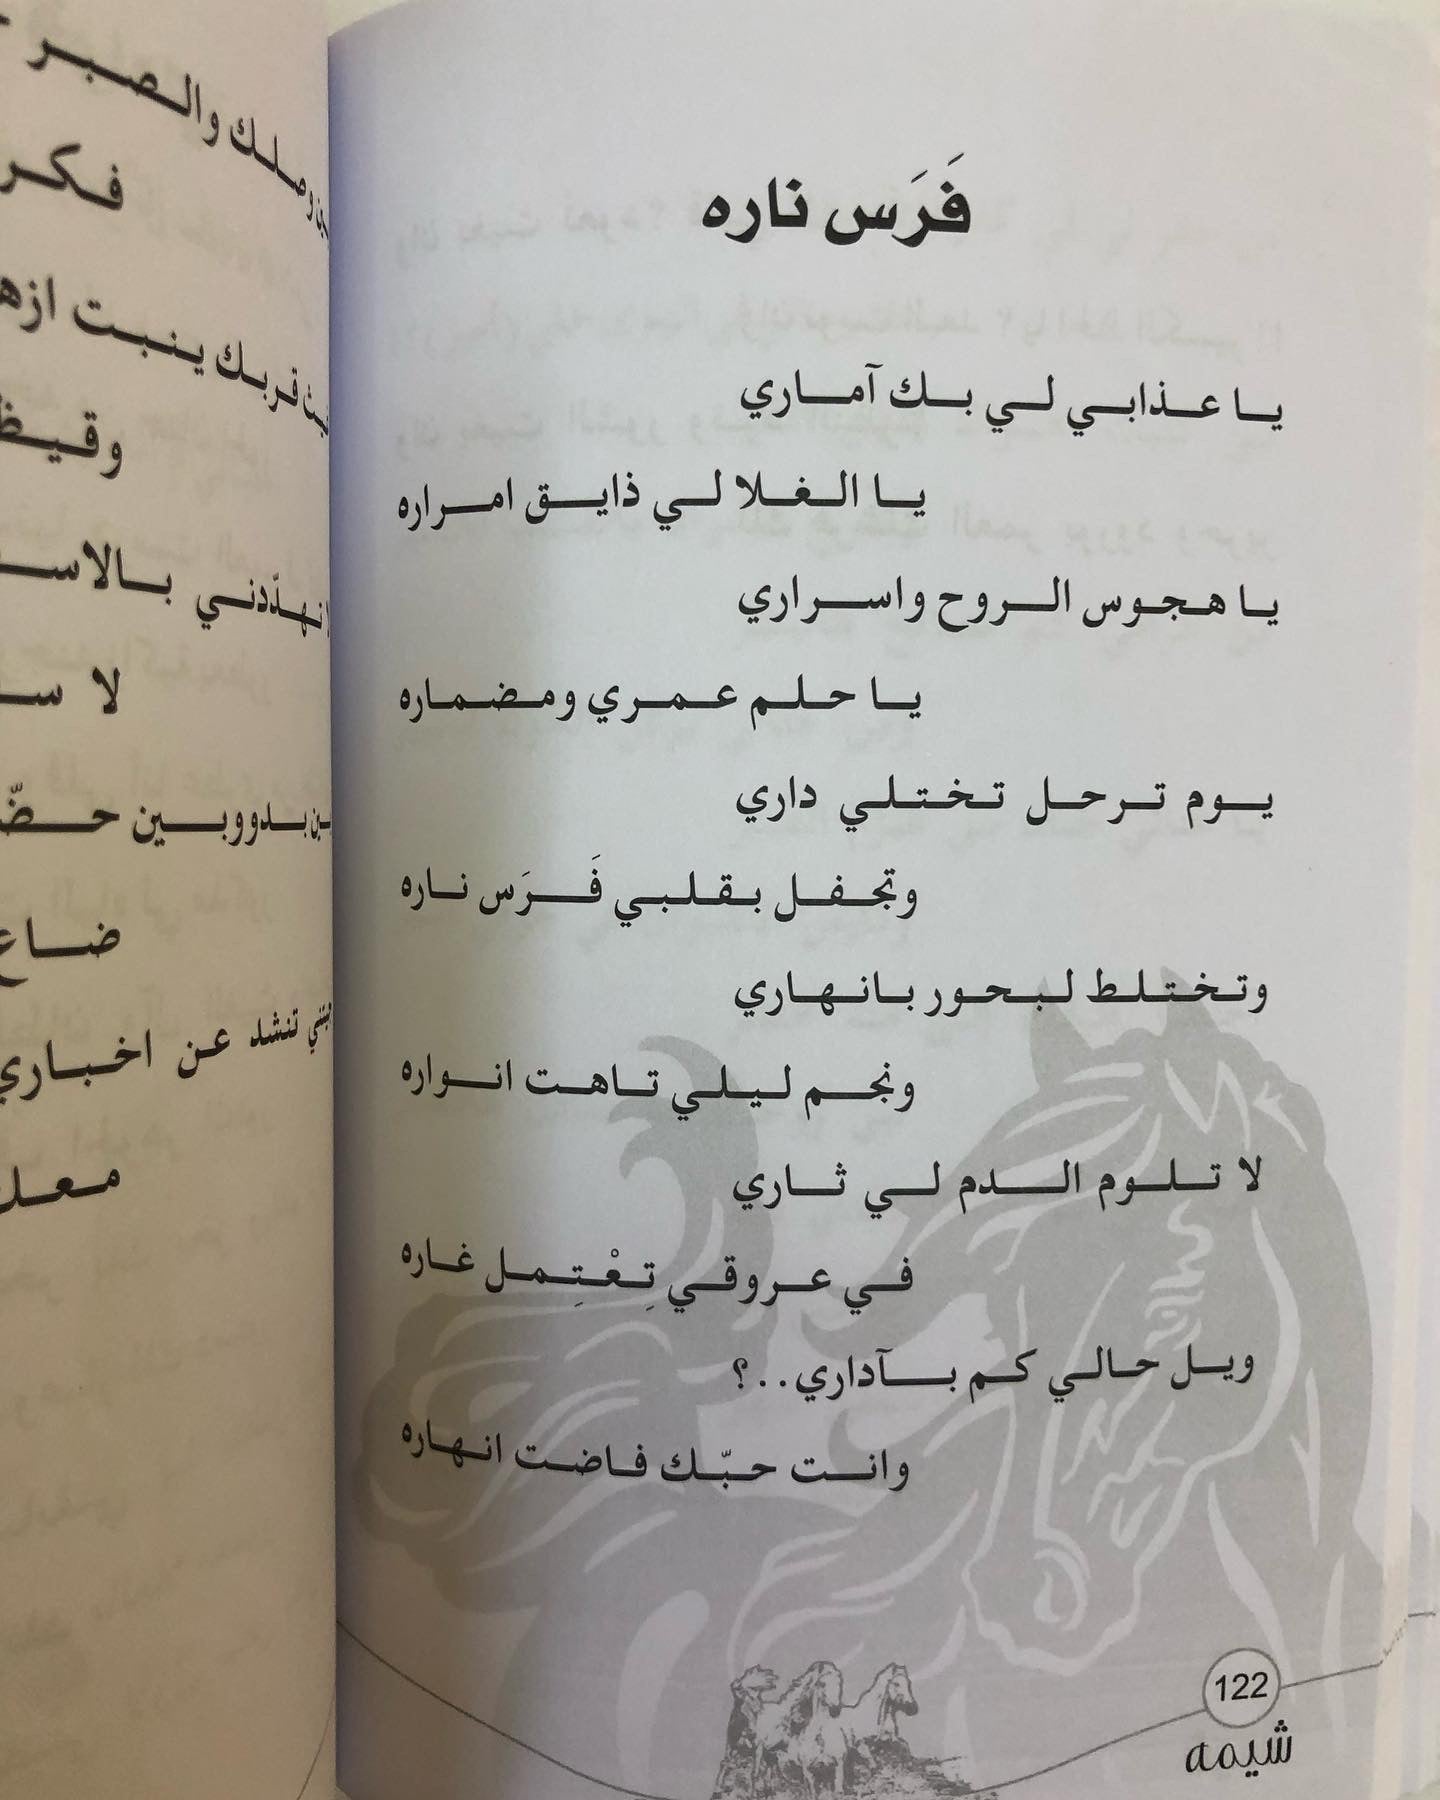 فَرَس ناره
يا عذابي لي بك آماري
يا الغلا لي ذايق امراره
يا هجوس الروح واسراري
يا حلم عمري ومضماره
يوم ترحل تختلي داري
وتجفل بقلبي فَرَس ناره
وتختلط لبحور بانهاري
ونجم ليلي تاهت انواره
لا تلوم الدم لي ثاري
في عروقي تِعْتِمل غاره
ويل حالي كم بآداري..؟
وانت حبّك فاضت انهاره
122
شيمه
وصلك والصبر
قربك ينبت
وقيظ
لا
بدووبين
ضاع
تنشد عن اخباري